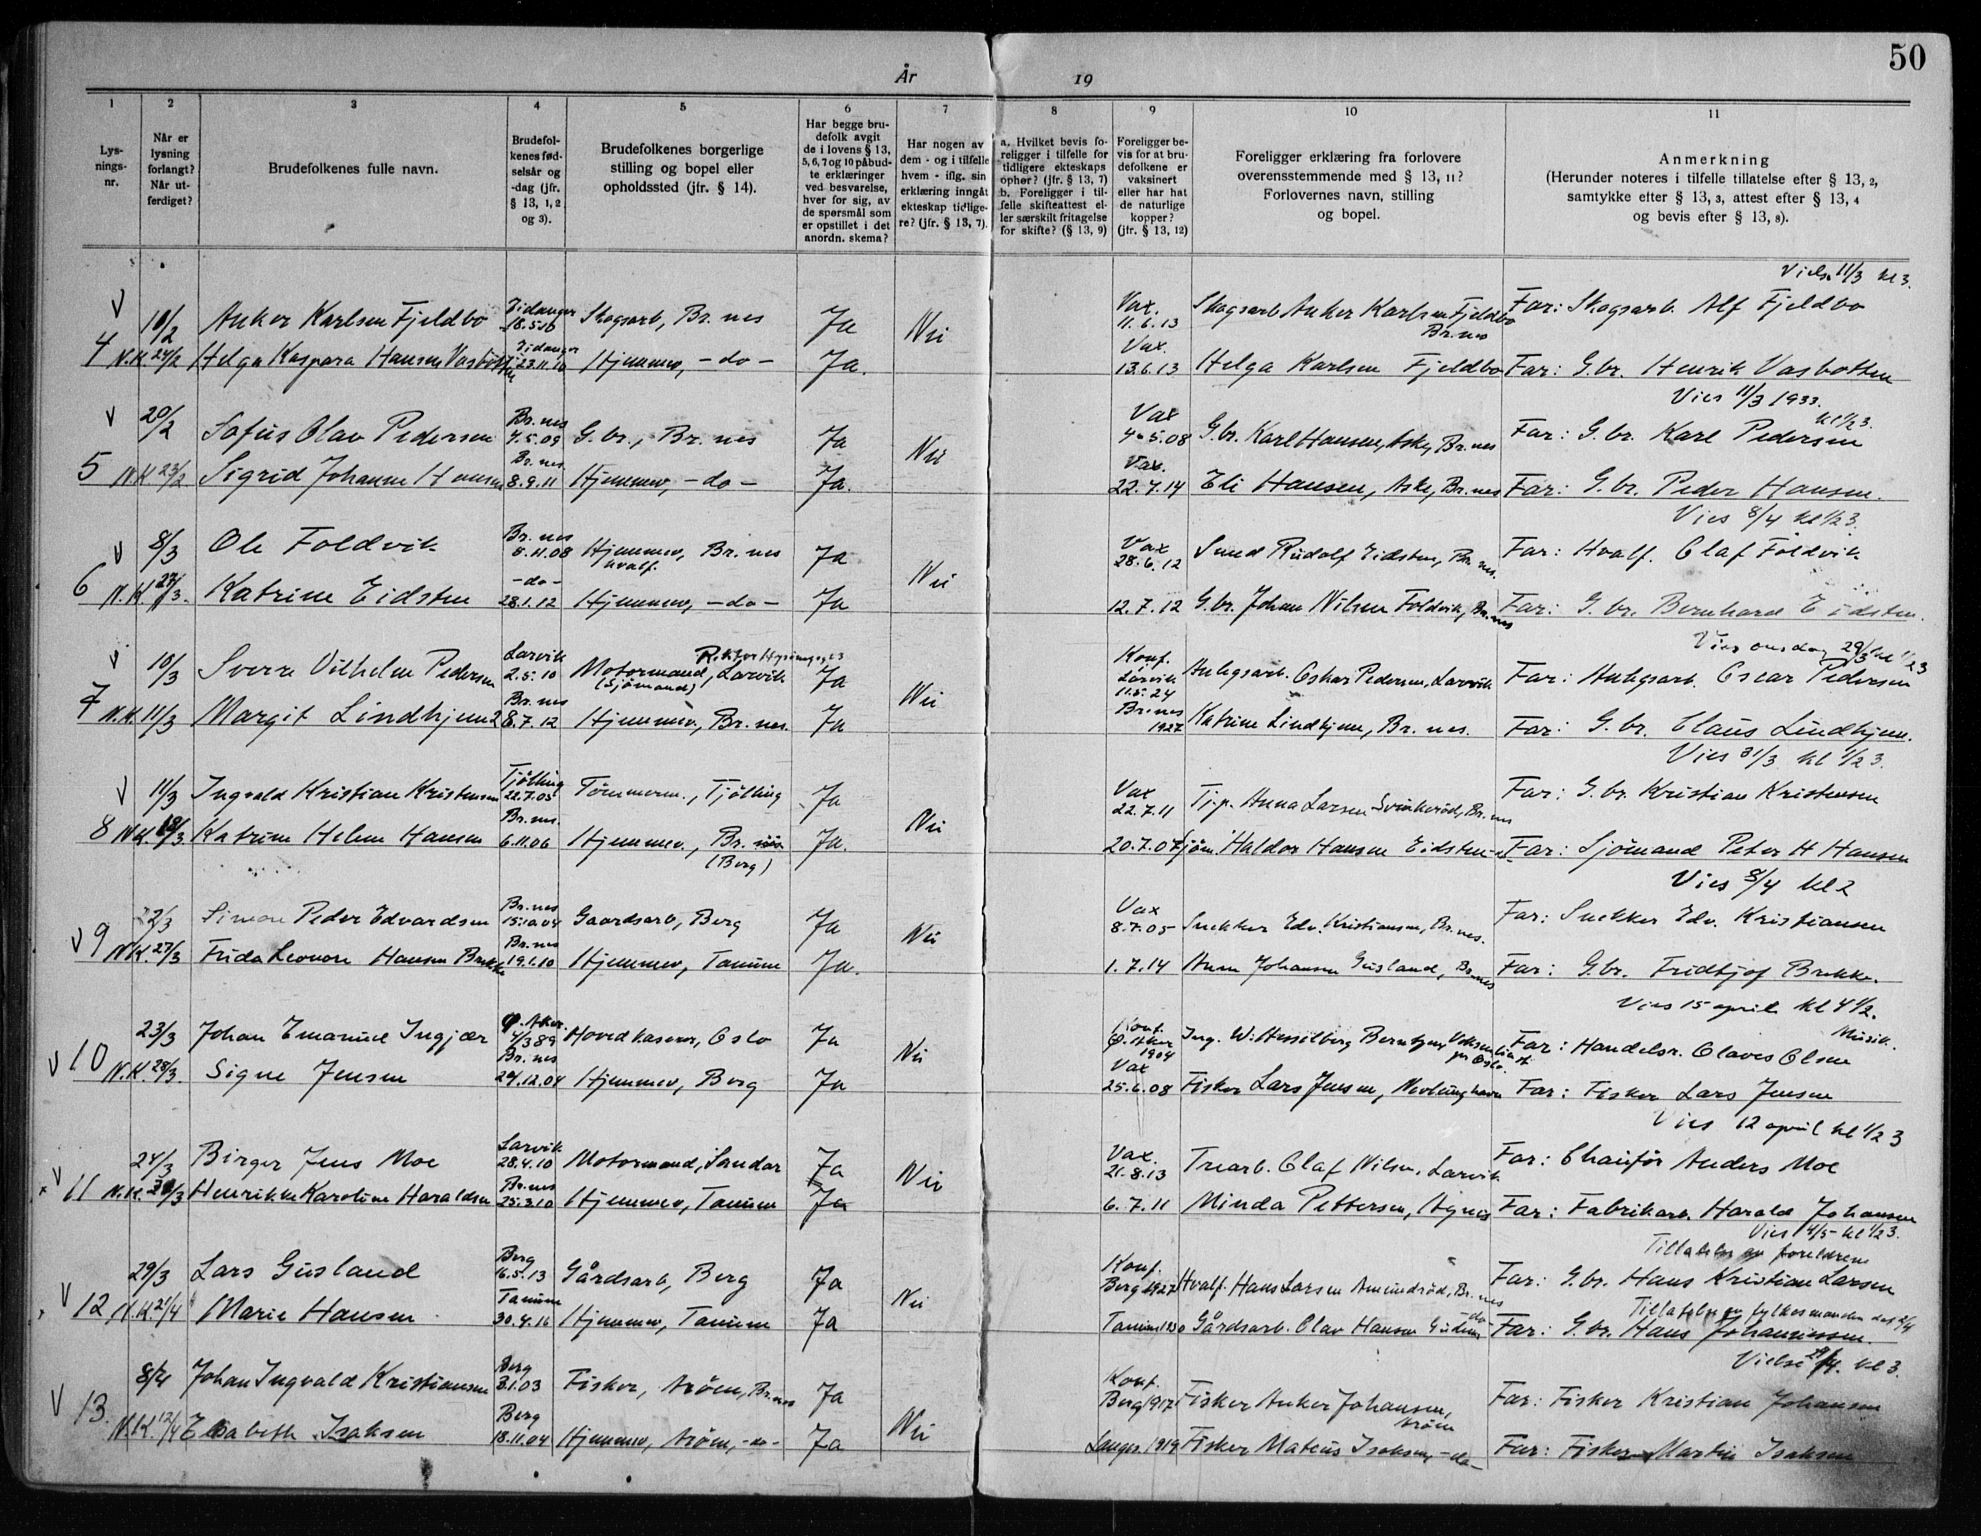 50
År 19
1 2 3 4 5 6 7 8 9 10 11
Lys-
nings-
nr.
Når er
lysning
forlangt?
Når ut-
ferdiget?
Brudefolkenes fulle navn.
Brudefol-
kenes fød-
selsår og
-dag (jfr.
§ 13, 1, 2
og 3).
Brudefolkenes borgerlige
stilling og bopel eller
opholdssted (jfr. § 14).
Har begge bru-
defolk avgit
de i lovens § 13,
5, 6, 7 og 10 påbud-
te erklæringer
ved besvarelse,
hver for sig, av
de spørsmål som
er opstillet i det
anordn. skema?
Har nogen av
dem - og i tilfelle
hvem - iflg. sin
erklæring inngåt
ekteskap tidlige-
re? (jfr. § 13, 7).
a. Hvilket bevis fo-
religger i tilfelle for
tidligere ekteskaps
ophør? (jfr. § 13, 7)
b. Foreligger i til-
felle skifteattest el-
ler særskilt fritagelse
for skifte? (§ 13, 9)
Foreligger be-
vis for at bru-
defolkene er
vaksinert
eller har hat
de naturlige
kopper?
(jfr. § 13, 12)
Foreligger erklæring fra forlovere
overensstemmende med § 13, 11?
Forlovernes navn, stilling
og bopel.
Anmerkning
(Herunder noteres i tilfelle tillatelse efter § 13, 2,
samtykke efter § 13, 3, attest efter § 13, 4
og bevis efter § 13, 8).
Vielse 11/3 kl 3.
V 10/2 Anker Karlsen Fjeldbo Eidanger 18.5.10 Skogsarb, Br.nes Ja Nei Vax. 11.6.13 Skogsarb Anker Karlsen Fjeldbo Br.nes Far: Skogsarb. Alf Fjeldbo
4 N.K. 24/2 Helga Kaspara Hansen Vasbotten Eidanger 23.11.10 Hjemmev, -do- Ja. Vax. 13.6.13 Helga Karlsen Fjeldbo Far: G.br. Henrik Vasbotten
Vies 11/3 1933. kl 1/2 3.
V 20/2 Sofus Olav Pedersen Br.nes 7.5.09 G.br., Br.nes Ja Nei Vax 4.5.08 G.br. Karl Hansen, Aske, Br.nes Far: G.br. Karl Pedersen
5 N.K 23/2 Sigrid Johanne Hansen Br.nes 8.9.11 Hjemmev, -do- Ja. Vax. 22.7.14 Eli Hansen, Aske, Br.nes Far: G.br. Peder Hansen.
Vies 8/4 kl 1/2 3.
V 8/3 Ole Foldvik Br.nes 8.11.08 Hjemmev, Br.nes hvalf. Ja Nei Vax 28.6.12 Smed Rudolf Eidsten, Br.nes. Far: Hvalf. Olaf Foldvik
6 N.K. 27/3. Katrine Eidsten -do- 28.1.12 Hjemmev, -do- Ja 12.7.12 G.br. Johan Nilsen Foldvik, Br.nes Far: G.br. Bernhard Eidsten.
Vies onsdag 29/3 kl 1/2 3
V 10/3 Sverre Vilhelm Pedersen Larvik 2.5.10 Motormand, Larvik (Sjømand) Ja Nei Konf. Larvik 11.5.24 Anlegsarb. Oskar Pedersen, Larvik Far: Anlegsarb. Oscar Pedersen
7 N.K. 11/3 Margit Lindhjem Br.nes 28.7.12 Hjemmev, Br.nes. Ja Br.nes 1927 Katrine Lindhjem, Br.nes. Far: G.br. Claus Lindhjem.
Vies 31/3 kl 1/2 3.
V 11/3 Ingvald Kristian Kristensen Tjølling 22.7.05 Tømmerm., Tjølling Ja Nei Vax 22.7.11 Tj.p. Anna Larsen Svinkerød, Br.nes Far: G.br. Kristian Kristensen
8 N.K. 18/3. Katrine Helene Hansen Br.nes. 6.11.06 Hjemmev, Br.nes (Berg) Ja. 20.7.07 Sjøm. Haldor Hansen Eidsten Far: Sjømand Peter H Hansen
Vies 8/4 kl 2
2/3 Simon Peder Edvardsen Br.nes 15.10.04 Gaardsarb, Berg Ja Nei Vax 8.7.05 Snekker Edv. Kristiansen, Br.nes. Far: Snekker Edv. Kristiansen
V 9 N.K. 27/3 Frida Leonore Hansen Brekke Br.nes 19.1.10 Hjemmev, Tanum Ja. 1.7.14 Anne Johansen Gusland, Br.nes Far: G.br. Fridtjof Brekke.
Vies 15 april kl 4 1/2.
23/3 Johan Emanuel Ingjær Ø. Aker. 4/3 89 Hovedkaserer, Oslo Ja Nei Konf. Ø. Aker 1904 Ing. W. Hesselberg Berntzen, Voksenlia pr Oslo Far: Handelsr. Olaves Olsen
Musik.
V 10 N.K. 28/3. Signe Jensen Br.nes 29.12.04 Hjemmev, Berg Ja Vax 25.6.08 Fisker Lars Jensen, Nevlunghavn Far: Fisker Lars Jensen
Vies 12 april kl 1/2 3
V 24/3 Birger Jens Moe Larvik 28.4.10 Motormand, Sandar Ja Nei Vax. 21.8.13 Trearb. Olaf Nilsen, Larvik Far: Chaufør Anders Moe
11 N.K. 30/3 Henrikke Karoline Haraldsen Br.nes 25.3.10 Hjemmev, Tanum Ja 6.7.11 Minda Pettersen, Agnes Far: Fabrikarb. Harald Johansen
Vies 4/5 kl 1/2 3.
Tillatelse av foreldrene
29/3 Lars Gusland Berg 16.5.13 Gårdsarb, Berg Ja Nei Konf. Berg 1927 Hvalf. Hans Larsen Amundrød, Br.nes Far: G.br. Hans Kristian Larsen
Tillatelse av fylkesmanden dat 2/4
V 12 N.K. 21/4 Marie Hansen Tanum 30.4.16 Hjemmev, Tanum Ja Tanum 1930 Gårdsarb. Olav Hansen -do- Far: G.br. Hans Johannessen.
Vielse 29/4. kl 3.
8/4 Johan Ingvald Kristiansen Berg 3.1.03 Fisker, Arøen, Br.nes Ja Nei Konf. Berg 1917 Fisker Anker Johansen, Arøen Far: Fisker Kristian Johansen
V 13. N.K. 12/4 Elsabeth Isaksen Berg 18.11.04 Hjemmev, Arøen, -do- Ja Langes. 1919 Fisker Mateus Isaksen, -do- Far: Fisker Martin Isaksen